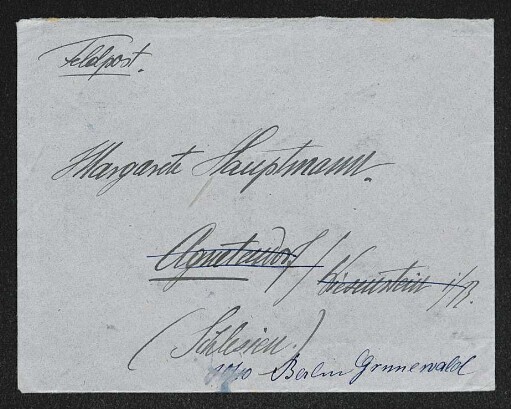 Feldpost.
Margarete Hauptmann.
Agnetendorf / Wiesenstein i/R.
(Schlesien.)
Berlin Grunewald